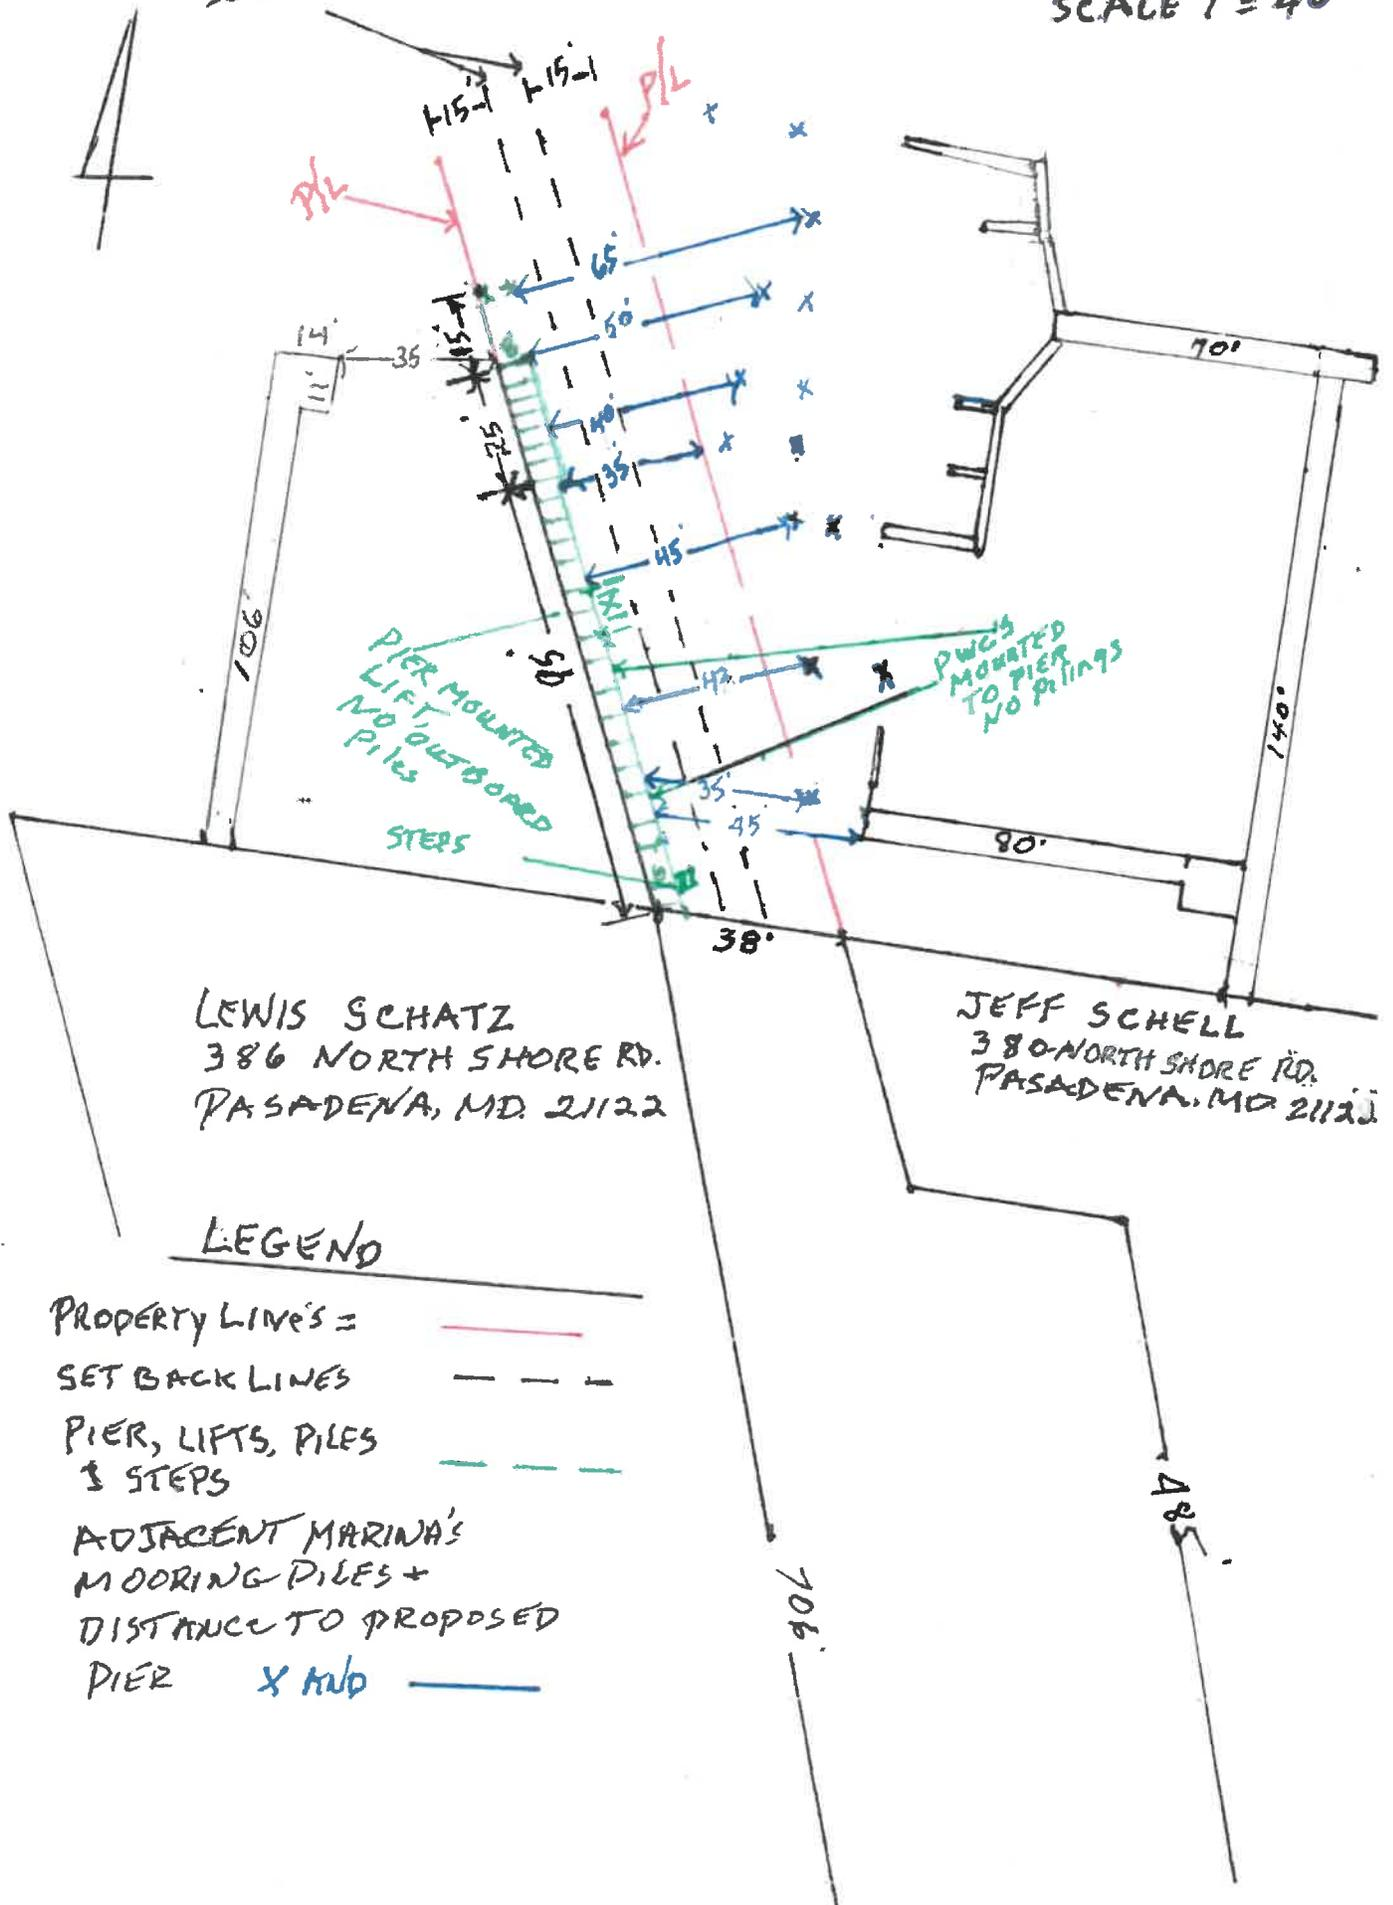 SCALE 1" = 40'
15'
15'
P/L
P/L
65'
50'
14'
35
15'
11'
70'
40'
25'
35'
45'
106'
95'
PIER MOUNTED
LIFT,
NO OUTBOARD
Piles
PWC'S
MOUNTED
TO PIER
NO Pilings
42'
140'
35'
45
STEPS
80'
38'
LEWIS SCHATZ
386 NORTH SHORE RD.
PASADENA, MD. 21122
JEFF SCHELL
380-NORTH SHORE RD.
PASADENA, MD. 21122
LEGEND
PROPERTY LINE'S =
SET BACK LINES
PIER, LIFTS, PILES
& STEPS
ADJACENT MARINA'S
MOORING PILES +
DISTANCE TO PROPOSED
PIER X AND
485'
706'